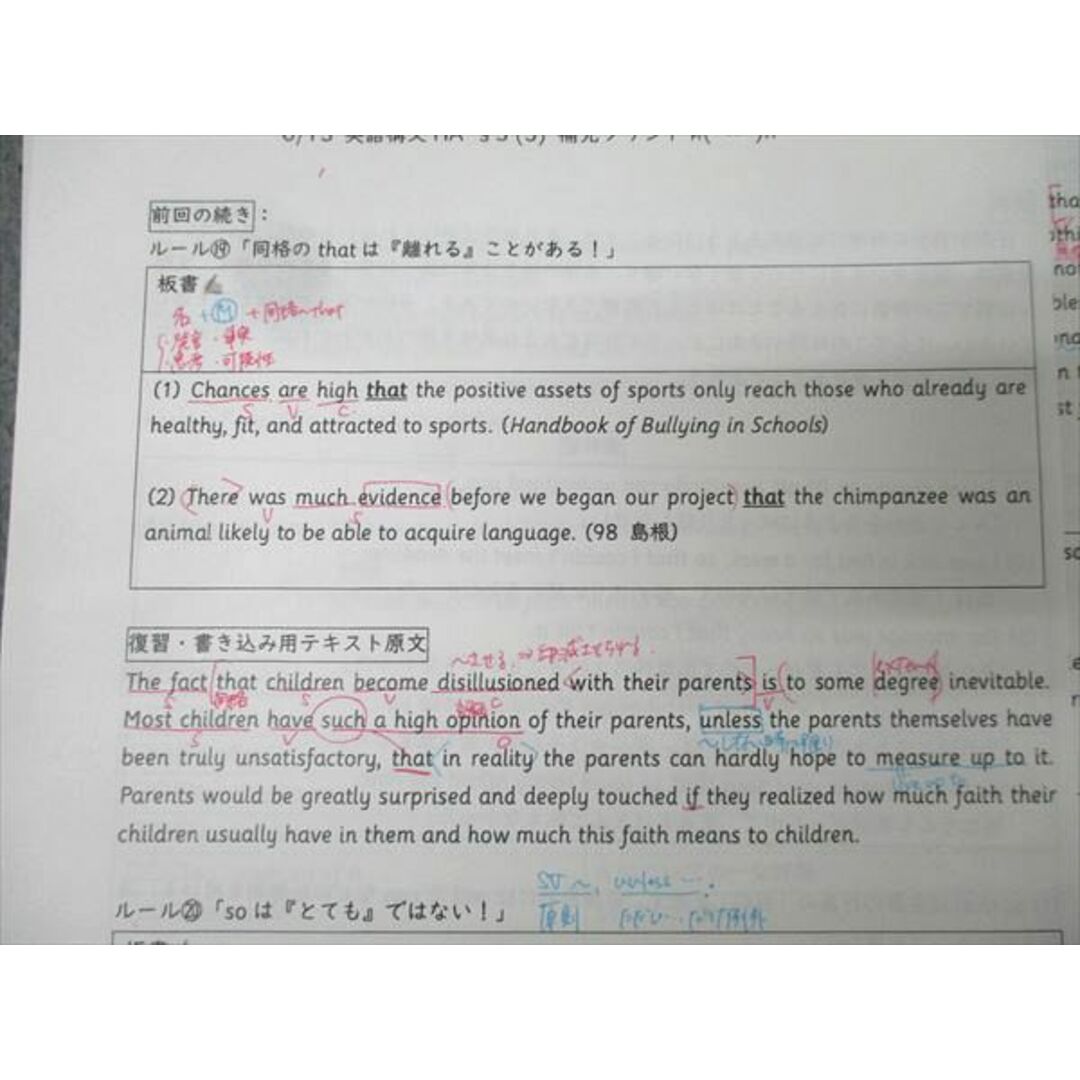 前回の続き:
ルール⑲「同格の that は『離れる』ことがある!」
板書
名 + M + 同格のthat
・発言・事実
・思考・可能性
(1) Chances are high that the positive assets of sports only reach those who already are
S V C
healthy, fit, and attracted to sports. (Handbook of Bullying in Schools)
(2) There was much evidence before we began our project that the chimpanzee was an
V S
animal likely to be able to acquire language. (98 島根)
復習・書き込み用テキスト原文
〜させる
The fact that children become disillusioned with their parents is to some degree inevitable.
S S V C V
Most children have such a high opinion of their parents, unless the parents themselves have
S V O
been truly unsatisfactory, that in reality the parents can hardly hope to measure up to it.
Parents would be greatly surprised and deeply touched if they realized how much faith their
children usually have in them and how much this faith means to children.
SV 〜, unless ….
原則
ルール⑳「so は『とても』ではない!」